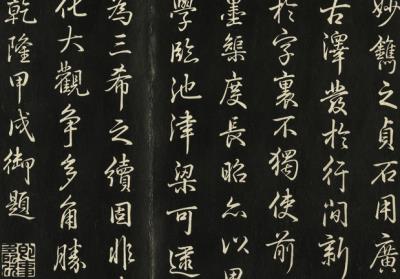 妙鐫之貞石用廣
古澤發於行間新
於字裏不獨使前
墨榘度長昭而以
學臨池津梁可逮
為三希之續固非
化大觀争多角勝
乾隆甲戌御題